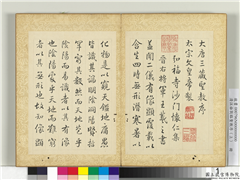 大唐三藏聖教序
太宗文皇帝製
弘福寺沙門懷仁集
晉右將軍王羲之書
蓋聞二儀有像顯覆載以
含生四時無形潛寒暑以
化物是以窺天鑑地庸愚
皆識其端明陰洞陽賢哲
罕窮其數然而天地苞乎
陰陽而易識者以其有像
也陰陽處乎天地而難窮
者以其無形也故知像顯